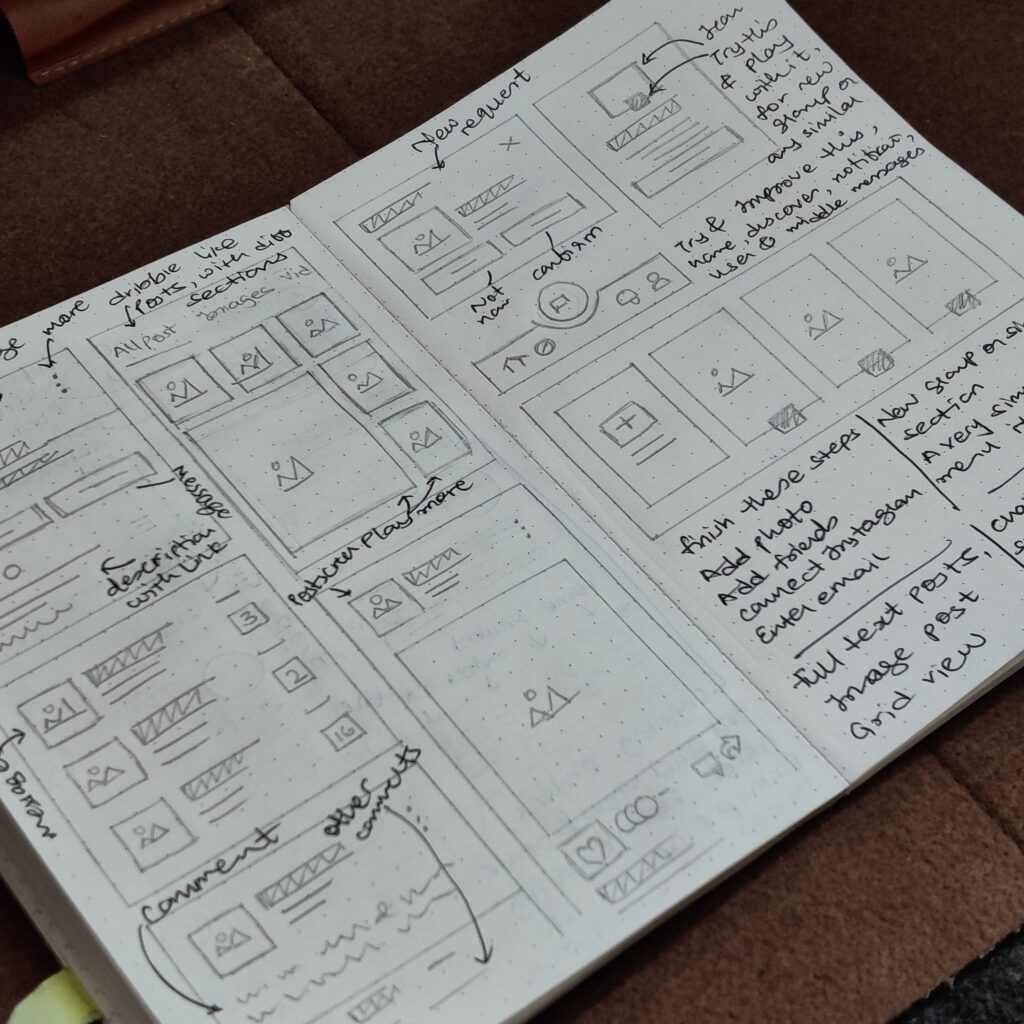 more dribble like
posts, with diff
sections
All Post Images Vid
Message
description
with link
Postscreen Play more
3
2
16
message
comment
other
comments
New request
×
Not
now
confirm
Icon
Try this
& Play
with it,
for new
group or
any similar
Try & improve this,
name, discover,
user & middle messages
finish these steps
Add photo
Add friends
connect Instagram
Enter email
Full text posts,
Image post
Grid view
New group or
section
A very
menu